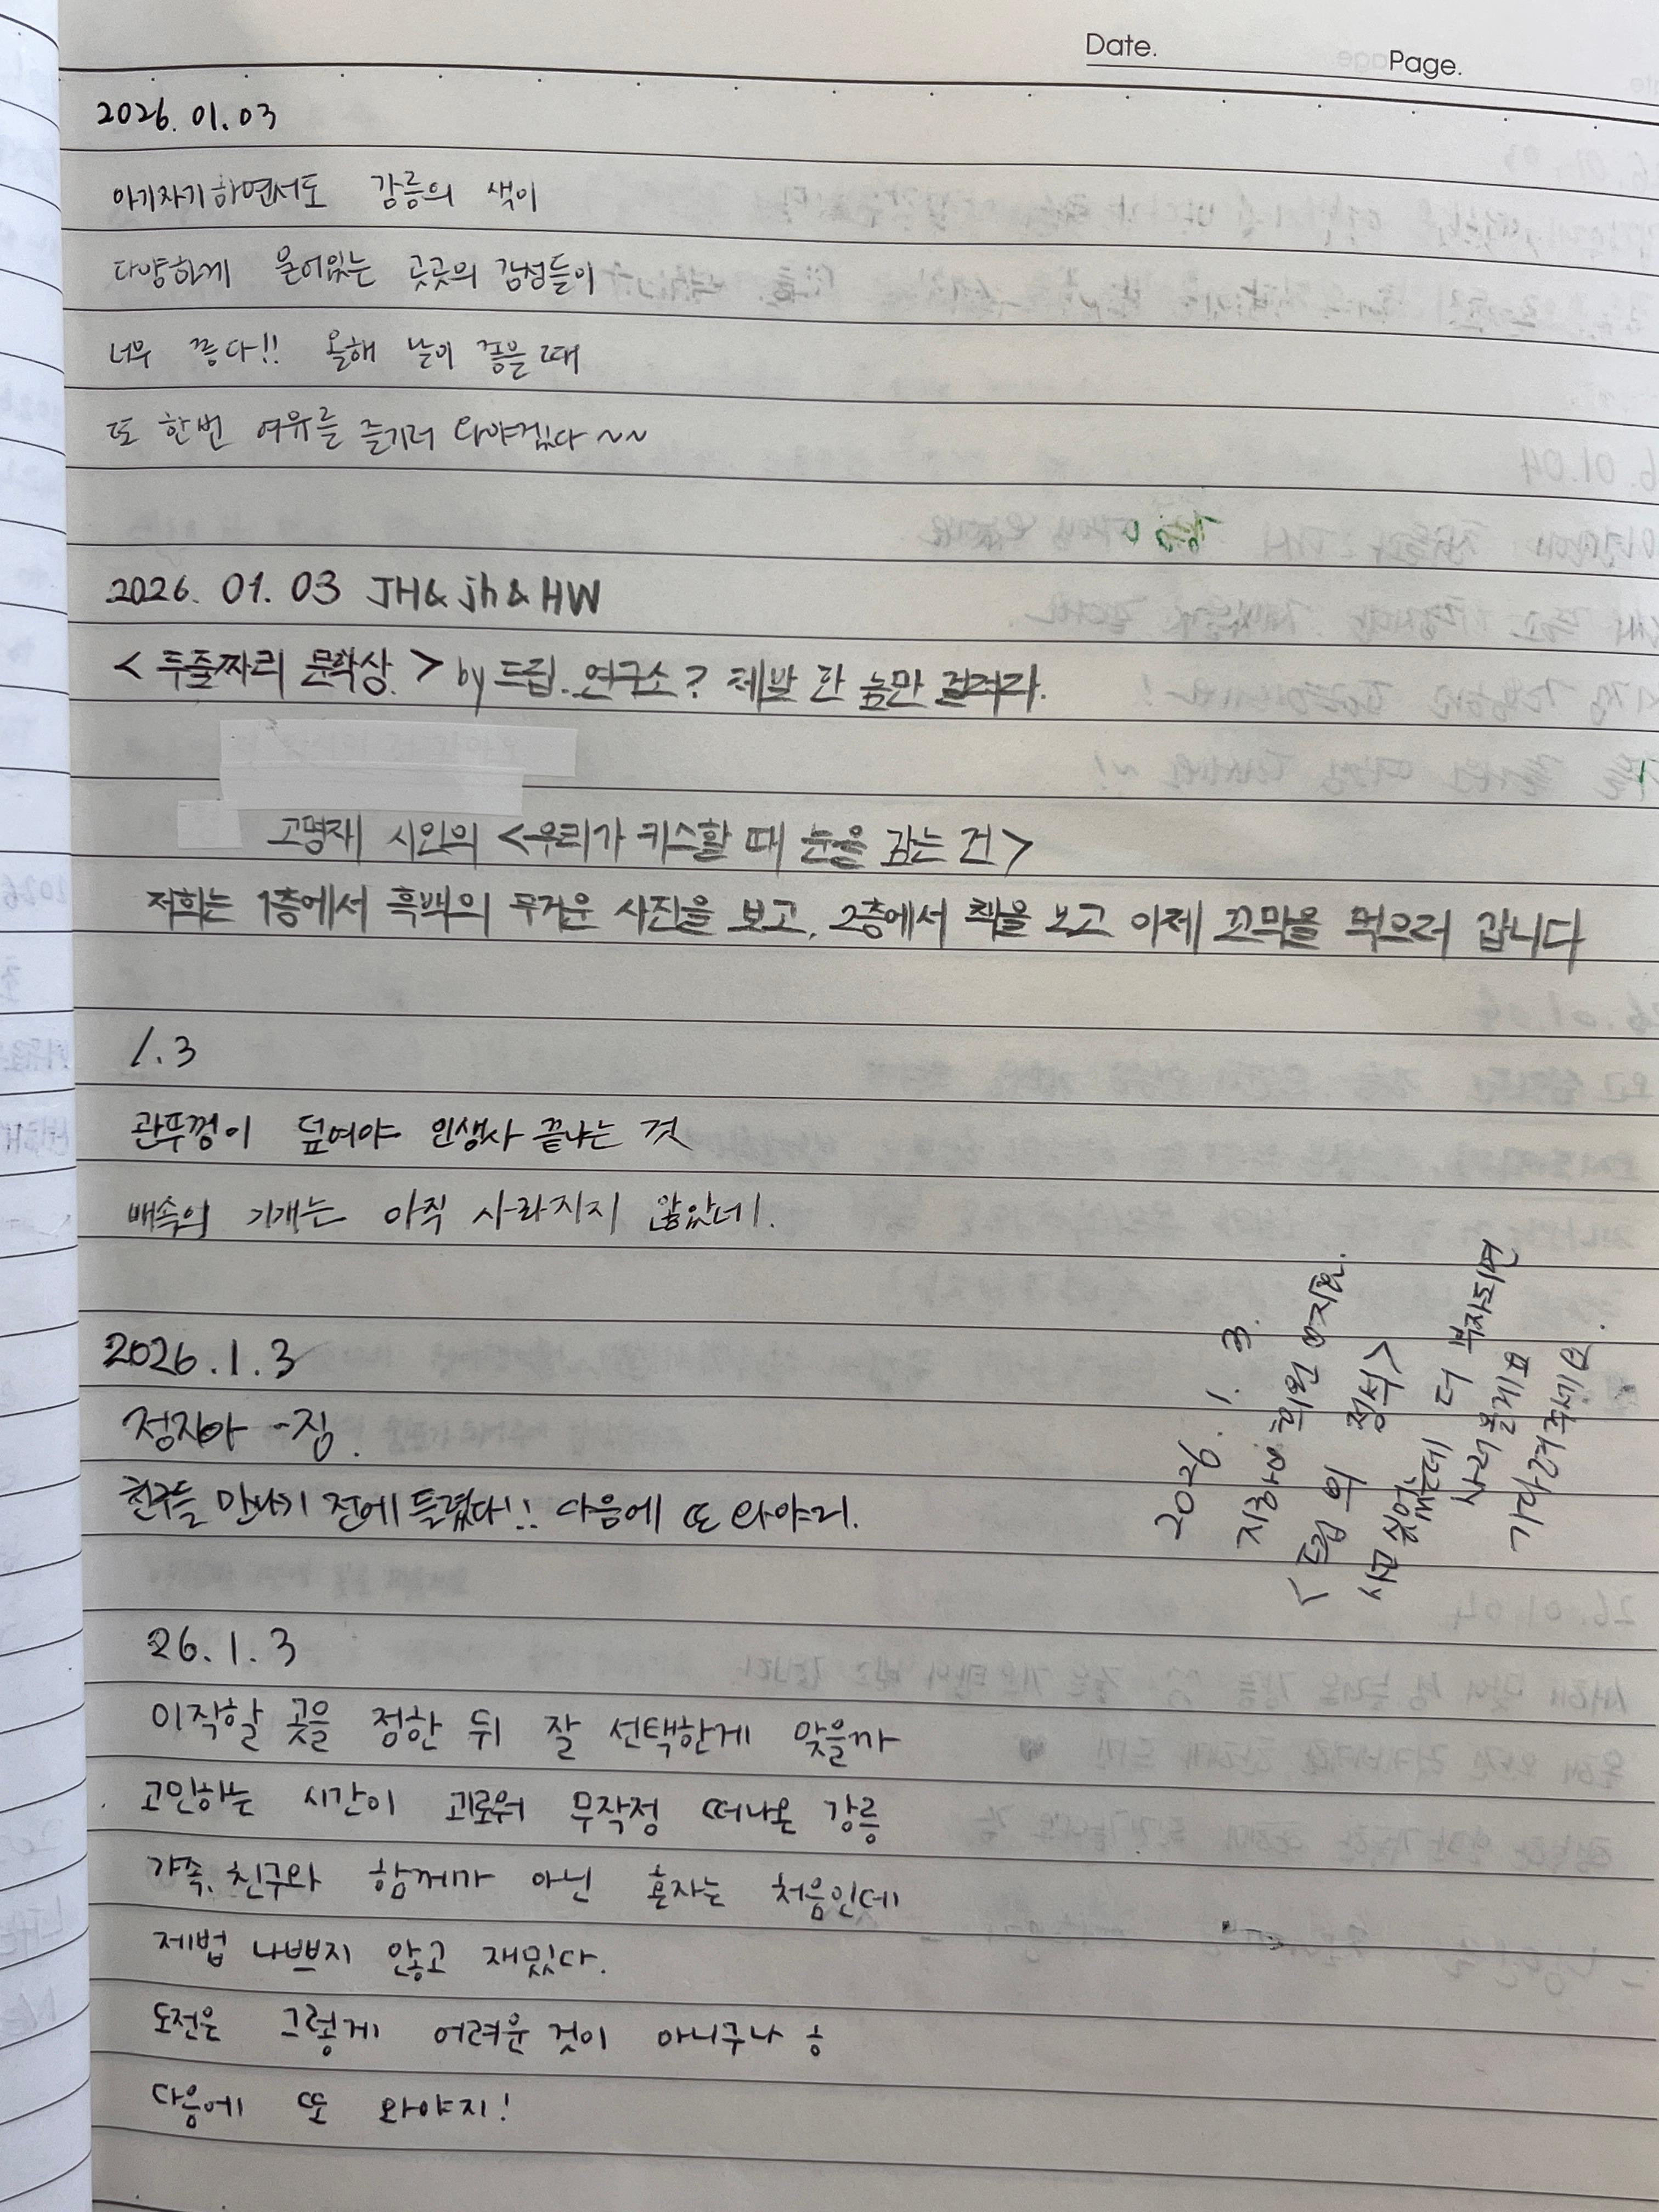 Date. Page.
2026. 01. 03
아기자기하면서도 강릉의 색이
다양하게 묻어있는 곳곳의 감성들이
너무 좋다!! 올해 날이 좋을 때
또 한번 여유를 즐기러 와야겠다 ~~
2026. 01. 03 JH & jh & HW
< 두줄짜리 문학상. > by 드립. 연구소? 제발 한 놈만 걸려라.
고명재 시인의 <우리가 키스할 때 눈을 감는 건>
저희는 1층에서 흑백의 무거운 사진을 보고, 2층에서 책을 보고 이제 꼬막을 먹으러 갑니다
1. 3
관뚜껑이 덮여야 인생사 끝나는 것
배속의 기개는 아직 사라지지 않았네.
2026. 1. 3
정지아 -집.
친구들 만나기 전에 들렸다!! 다음에 또 와야리.
2026. 1. 3.
<드립의 정석>
사고 싶었는데 더 부자되면
사러 올게요
기다려주세요.
26. 1. 3
이직할 곳을 정한 뒤 잘 선택한게 맞을까
고민하는 시간이 괴로워 무작정 떠나온 강릉
가족, 친구와 함께가 아닌 혼자는 처음인데
제법 나쁘지 않고 재밌다.
도전은 그렇게 어려운 것이 아니구나 ㅎ
다음에 또 와야지!